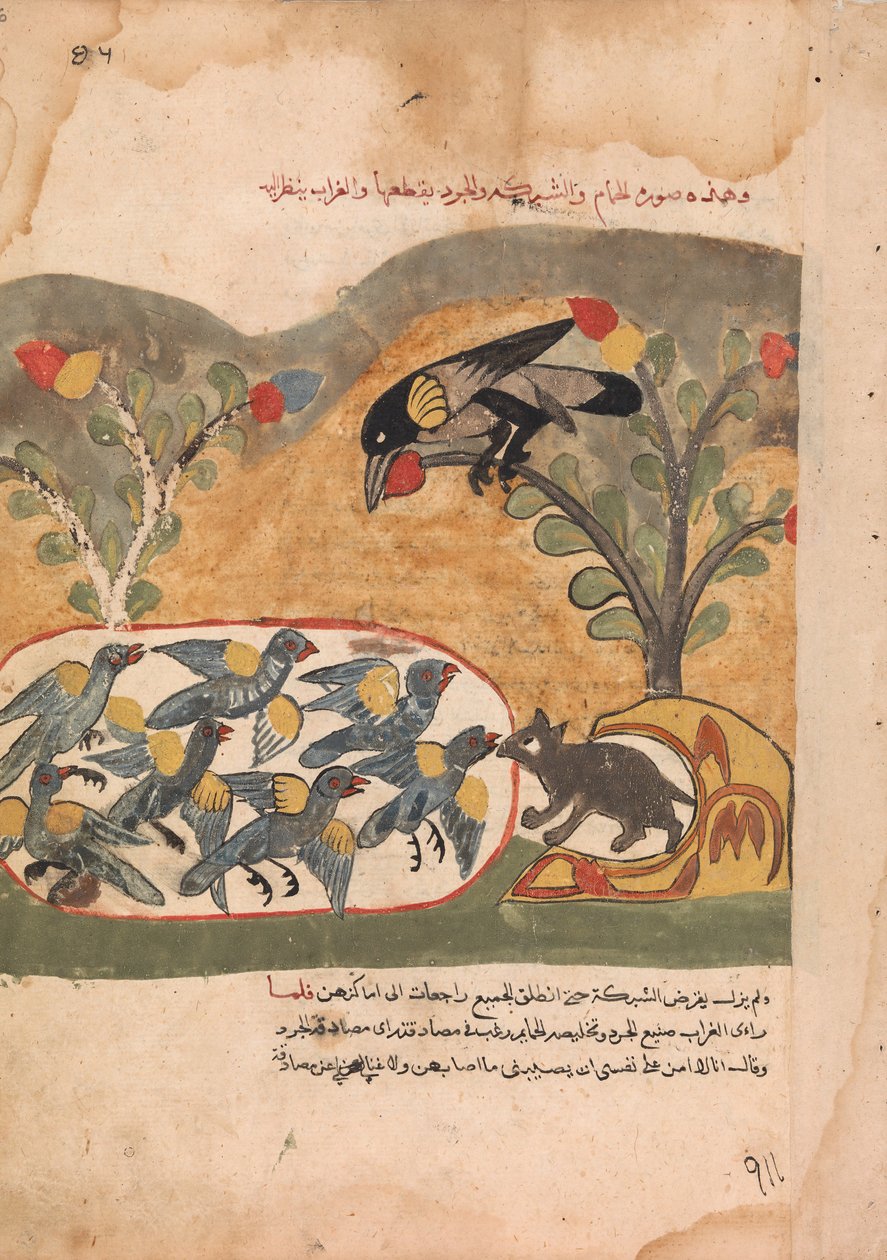 وهذه صوره الحمام والشبركه والجرد يقطعها والغراب ينظر اليه
ولم يزل يقرض الشبكة حتى انطلق الجميع راجعات الى اماكنهن فلما
راءى الغراب صنيع الجرد وتخليصه الحمايم رغب في مصادقته راى مصادقة الجرد
وقال انا لا امن على نفسى ان يصيبنى ما اصابهن ولا غنا لى عن مصادقة